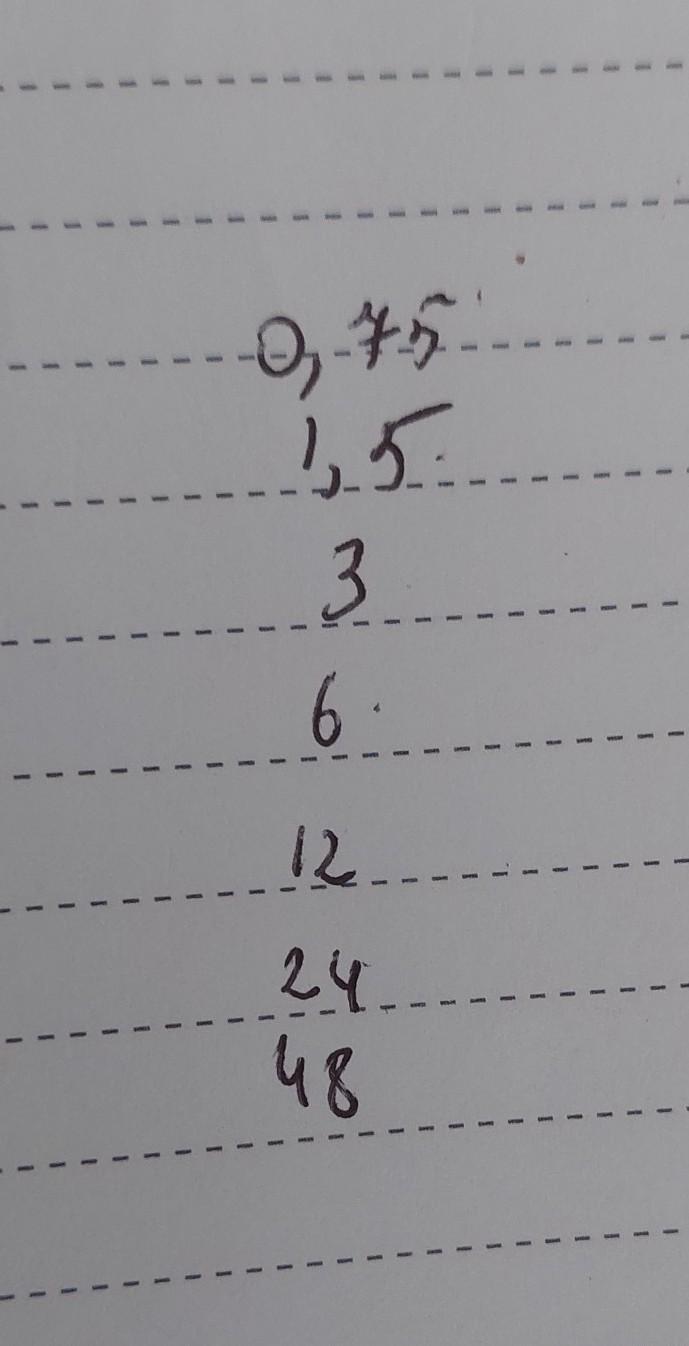 0,75
1,5
3
6
12
24
48